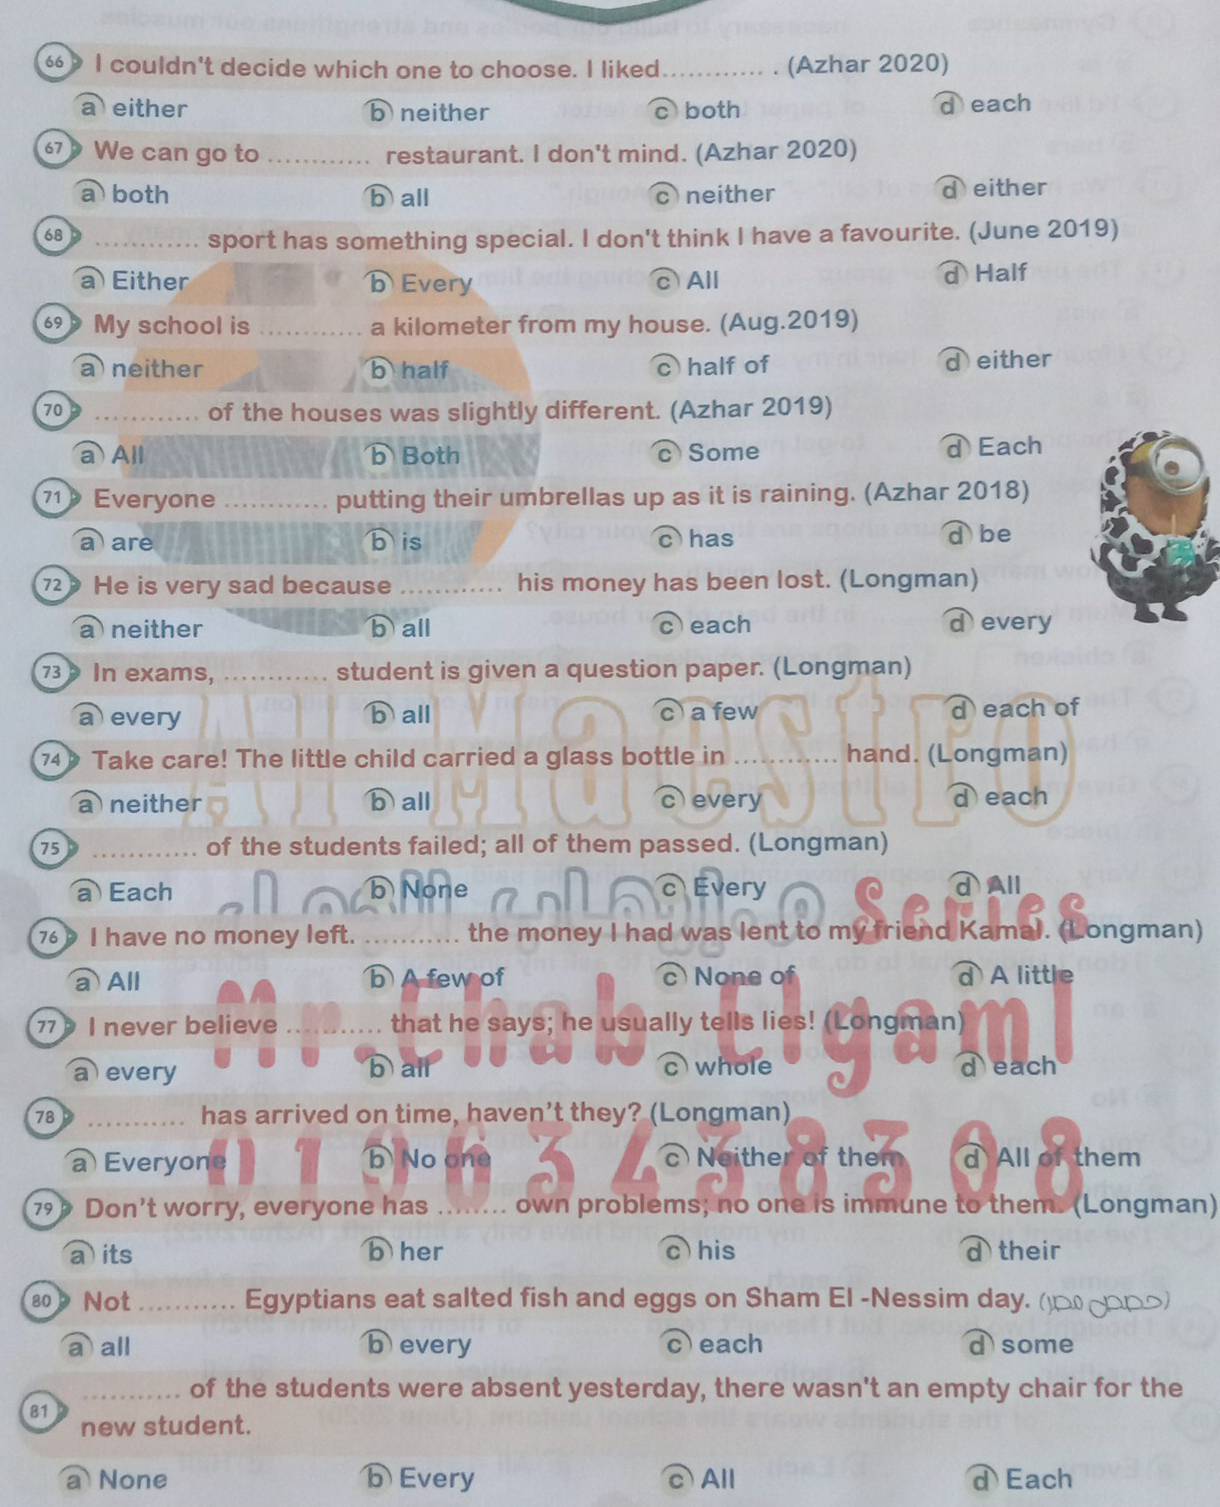 66 I couldn't decide which one to choose. I liked............ . (Azhar 2020)
a either b neither c both d each
67 We can go to ............ restaurant. I don't mind. (Azhar 2020)
a both b all c neither d either
68 ............ sport has something special. I don't think I have a favourite. (June 2019)
a Either b Every c All d Half
69 My school is ............ a kilometer from my house. (Aug.2019)
a neither b half c half of d either
70 ............ of the houses was slightly different. (Azhar 2019)
a All b Both c Some d Each
71 Everyone ............ putting their umbrellas up as it is raining. (Azhar 2018)
a are b is c has d be
72 He is very sad because ............ his money has been lost. (Longman)
a neither b all c each d every
73 In exams, ............ student is given a question paper. (Longman)
a every b all c a few d each of
74 Take care! The little child carried a glass bottle in ............ hand. (Longman)
a neither b all c every d each
Al Maestro
75 ............ of the students failed; all of them passed. (Longman)
a Each b None c Every d All
Series
76 I have no money left. ........... the money I had was lent to my friend Kamal. (Longman)
a All b A few of c None of d A little
77 I never believe ........... that he says; he usually tells lies! (Longman)
a every b all c whole d each
Mr.Ehab Elgaml
78 ........... has arrived on time, haven't they? (Longman)
a Everyone b No one c Neither of them d All of them
79 Don't worry, everyone has ........ own problems; no one is immune to them. (Longman)
a its b her c his d their
80 Not ........... Egyptians eat salted fish and eggs on Sham El -Nessim day.
a all b every c each d some
81 ........... of the students were absent yesterday, there wasn't an empty chair for the
new student.
a None b Every c All d Each